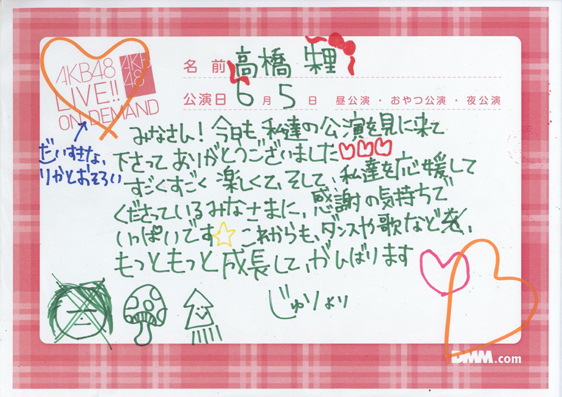 AKB48
LIVE!!
ON DEMAND
AKB
48
名前 高橋朱里
公演日 6月5日 昼公演・おやつ公演・夜公演
だいすきな、
りかとおそろい
みなさん!今日も私達の公演を見に来て
下さってありがとうございました♡♡♡
すごくすごく楽しくて、そして、私達を応援して
くださっているみなさまに、感謝の気持ちで
いっぱいです☆これからも、ダンスや歌など
もっともっと成長して、がんばります
じゅりより
DMM.com